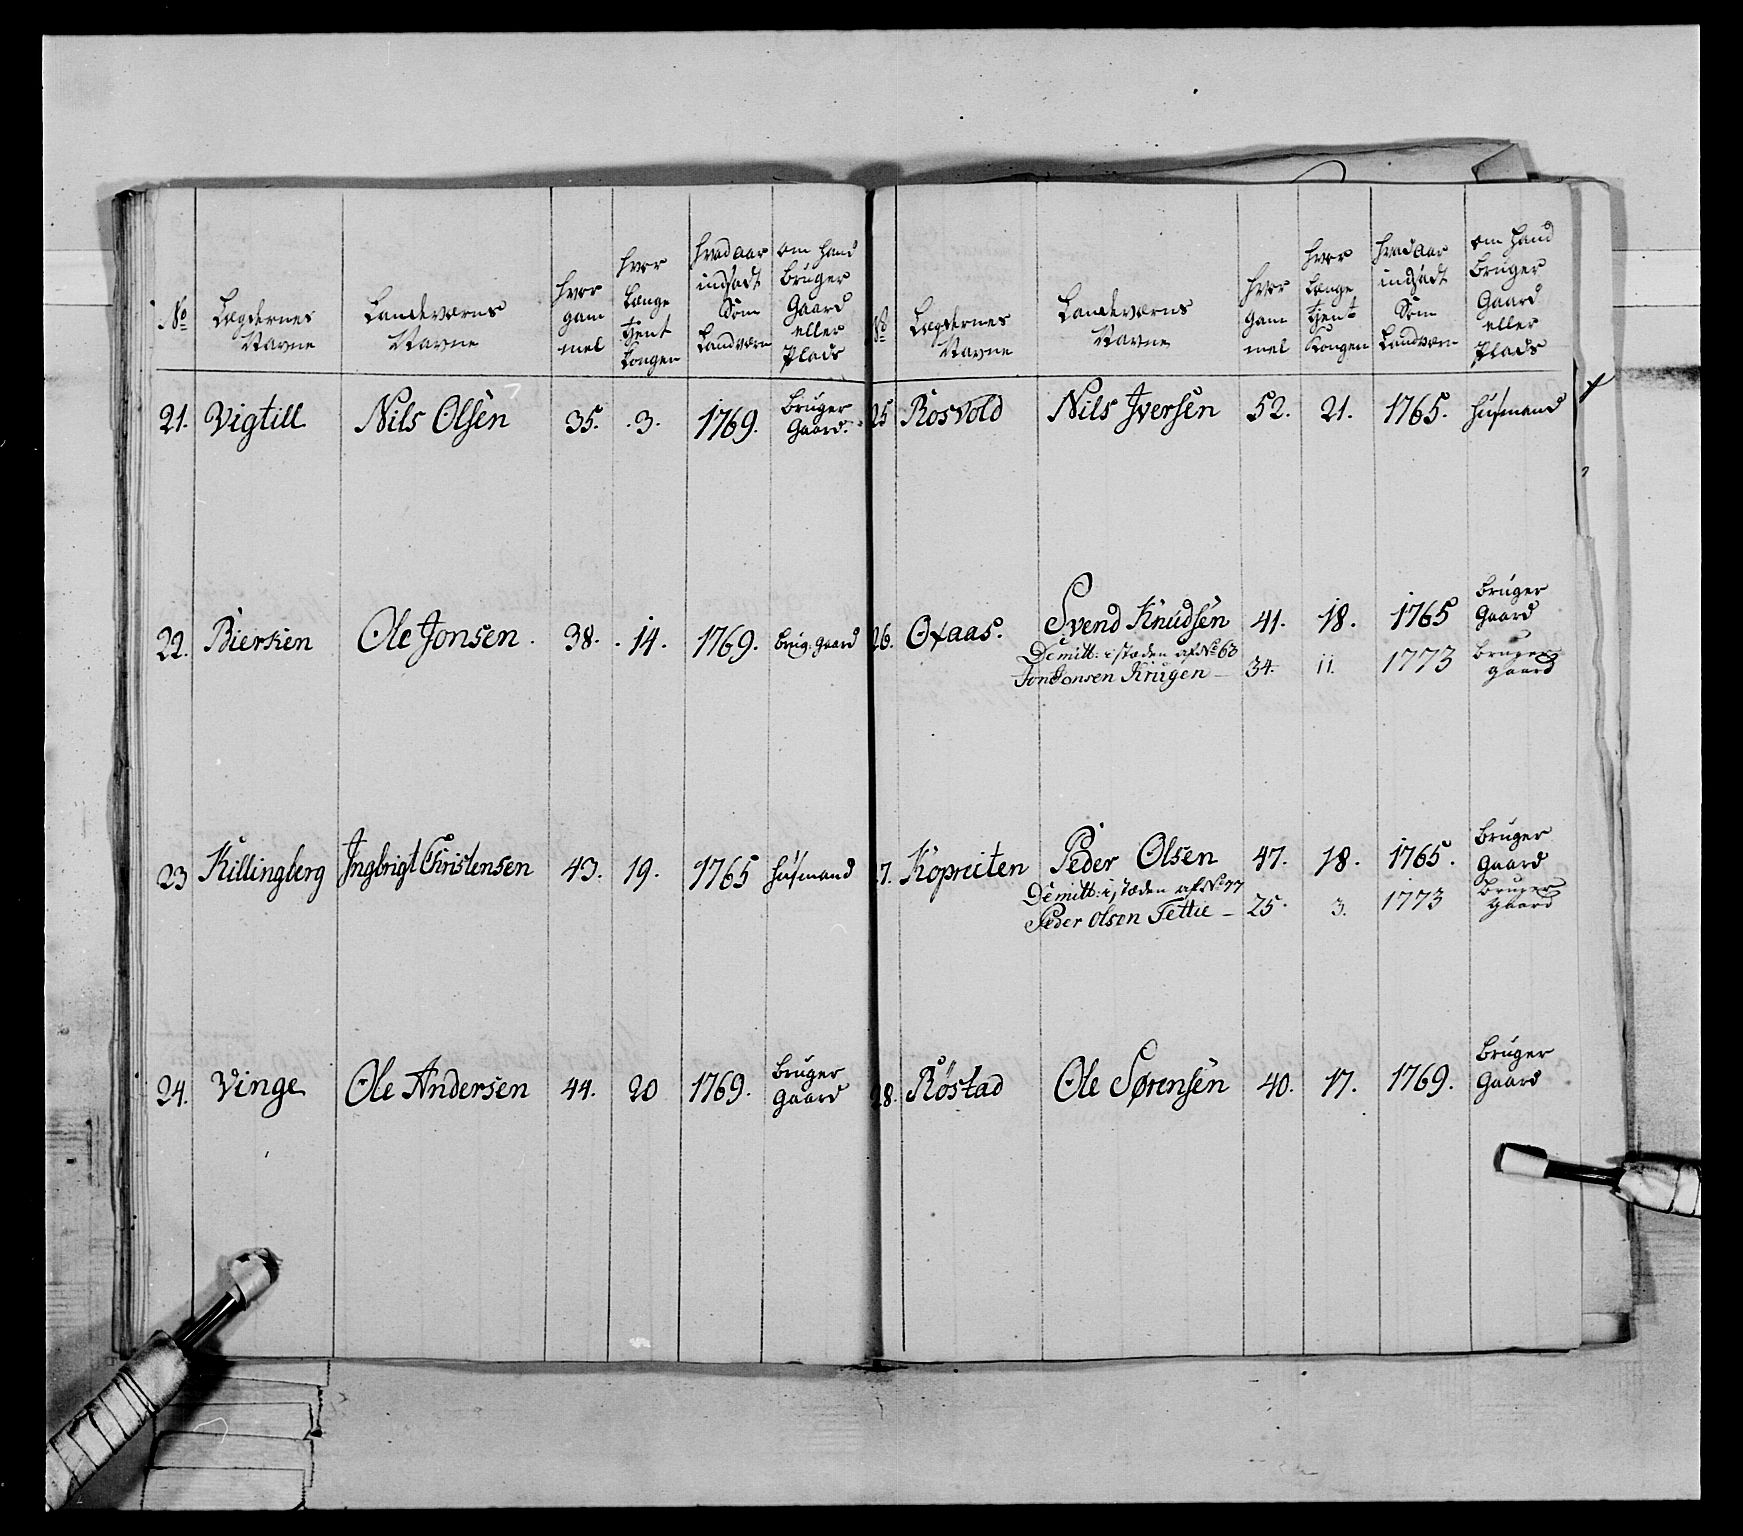 No
Lægdernes
Navne
Landeværns
Navne
hvor
gam
mel
hvor
længe
tient
Kongen
hvad aar
indsadt
Som
Landværn
om hand
bruger
Gaard
eller
Plads
21. Vigtill Nils Olsen 35. 3. 1769. bruger
Gaard.
22. Bierken Ole Jonsen. 38. 14. 1769. brug: gaard
23 Killingberg Ingbrigt Christensen 43. 19. 1765 husmand
24. Vinge Ole Andersen 44. 20 1769. bruger
gaard
No
Lægdernes
Navne
Landeværns
Navne
hvor
gam
mel
hvor
længe
tient
Kongen
hvad aar
indsadt
Som
Landværn
om hand
bruger
Gaard
eller
Plads
25 Rosvold Nils Iversen 52. 21. 1765. husmand
26. Oxaas. Svend Knudsen 41. 18. 1765 bruger
Gaard
Demitt: i stæden af No 63
Jon Jonsen Krigen – 34. 11. 1773 bruger
gaard
27. Kopreiten Peder Olsen 47. 18. 1765. bruger
Gaard
Demitt: i stæden af No 77
Peder Olsen Tettie – 25. 3. 1773 bruger
gaard
28. Røstad Ole Sørensen 40. 17. 1769. bruger
Gaard